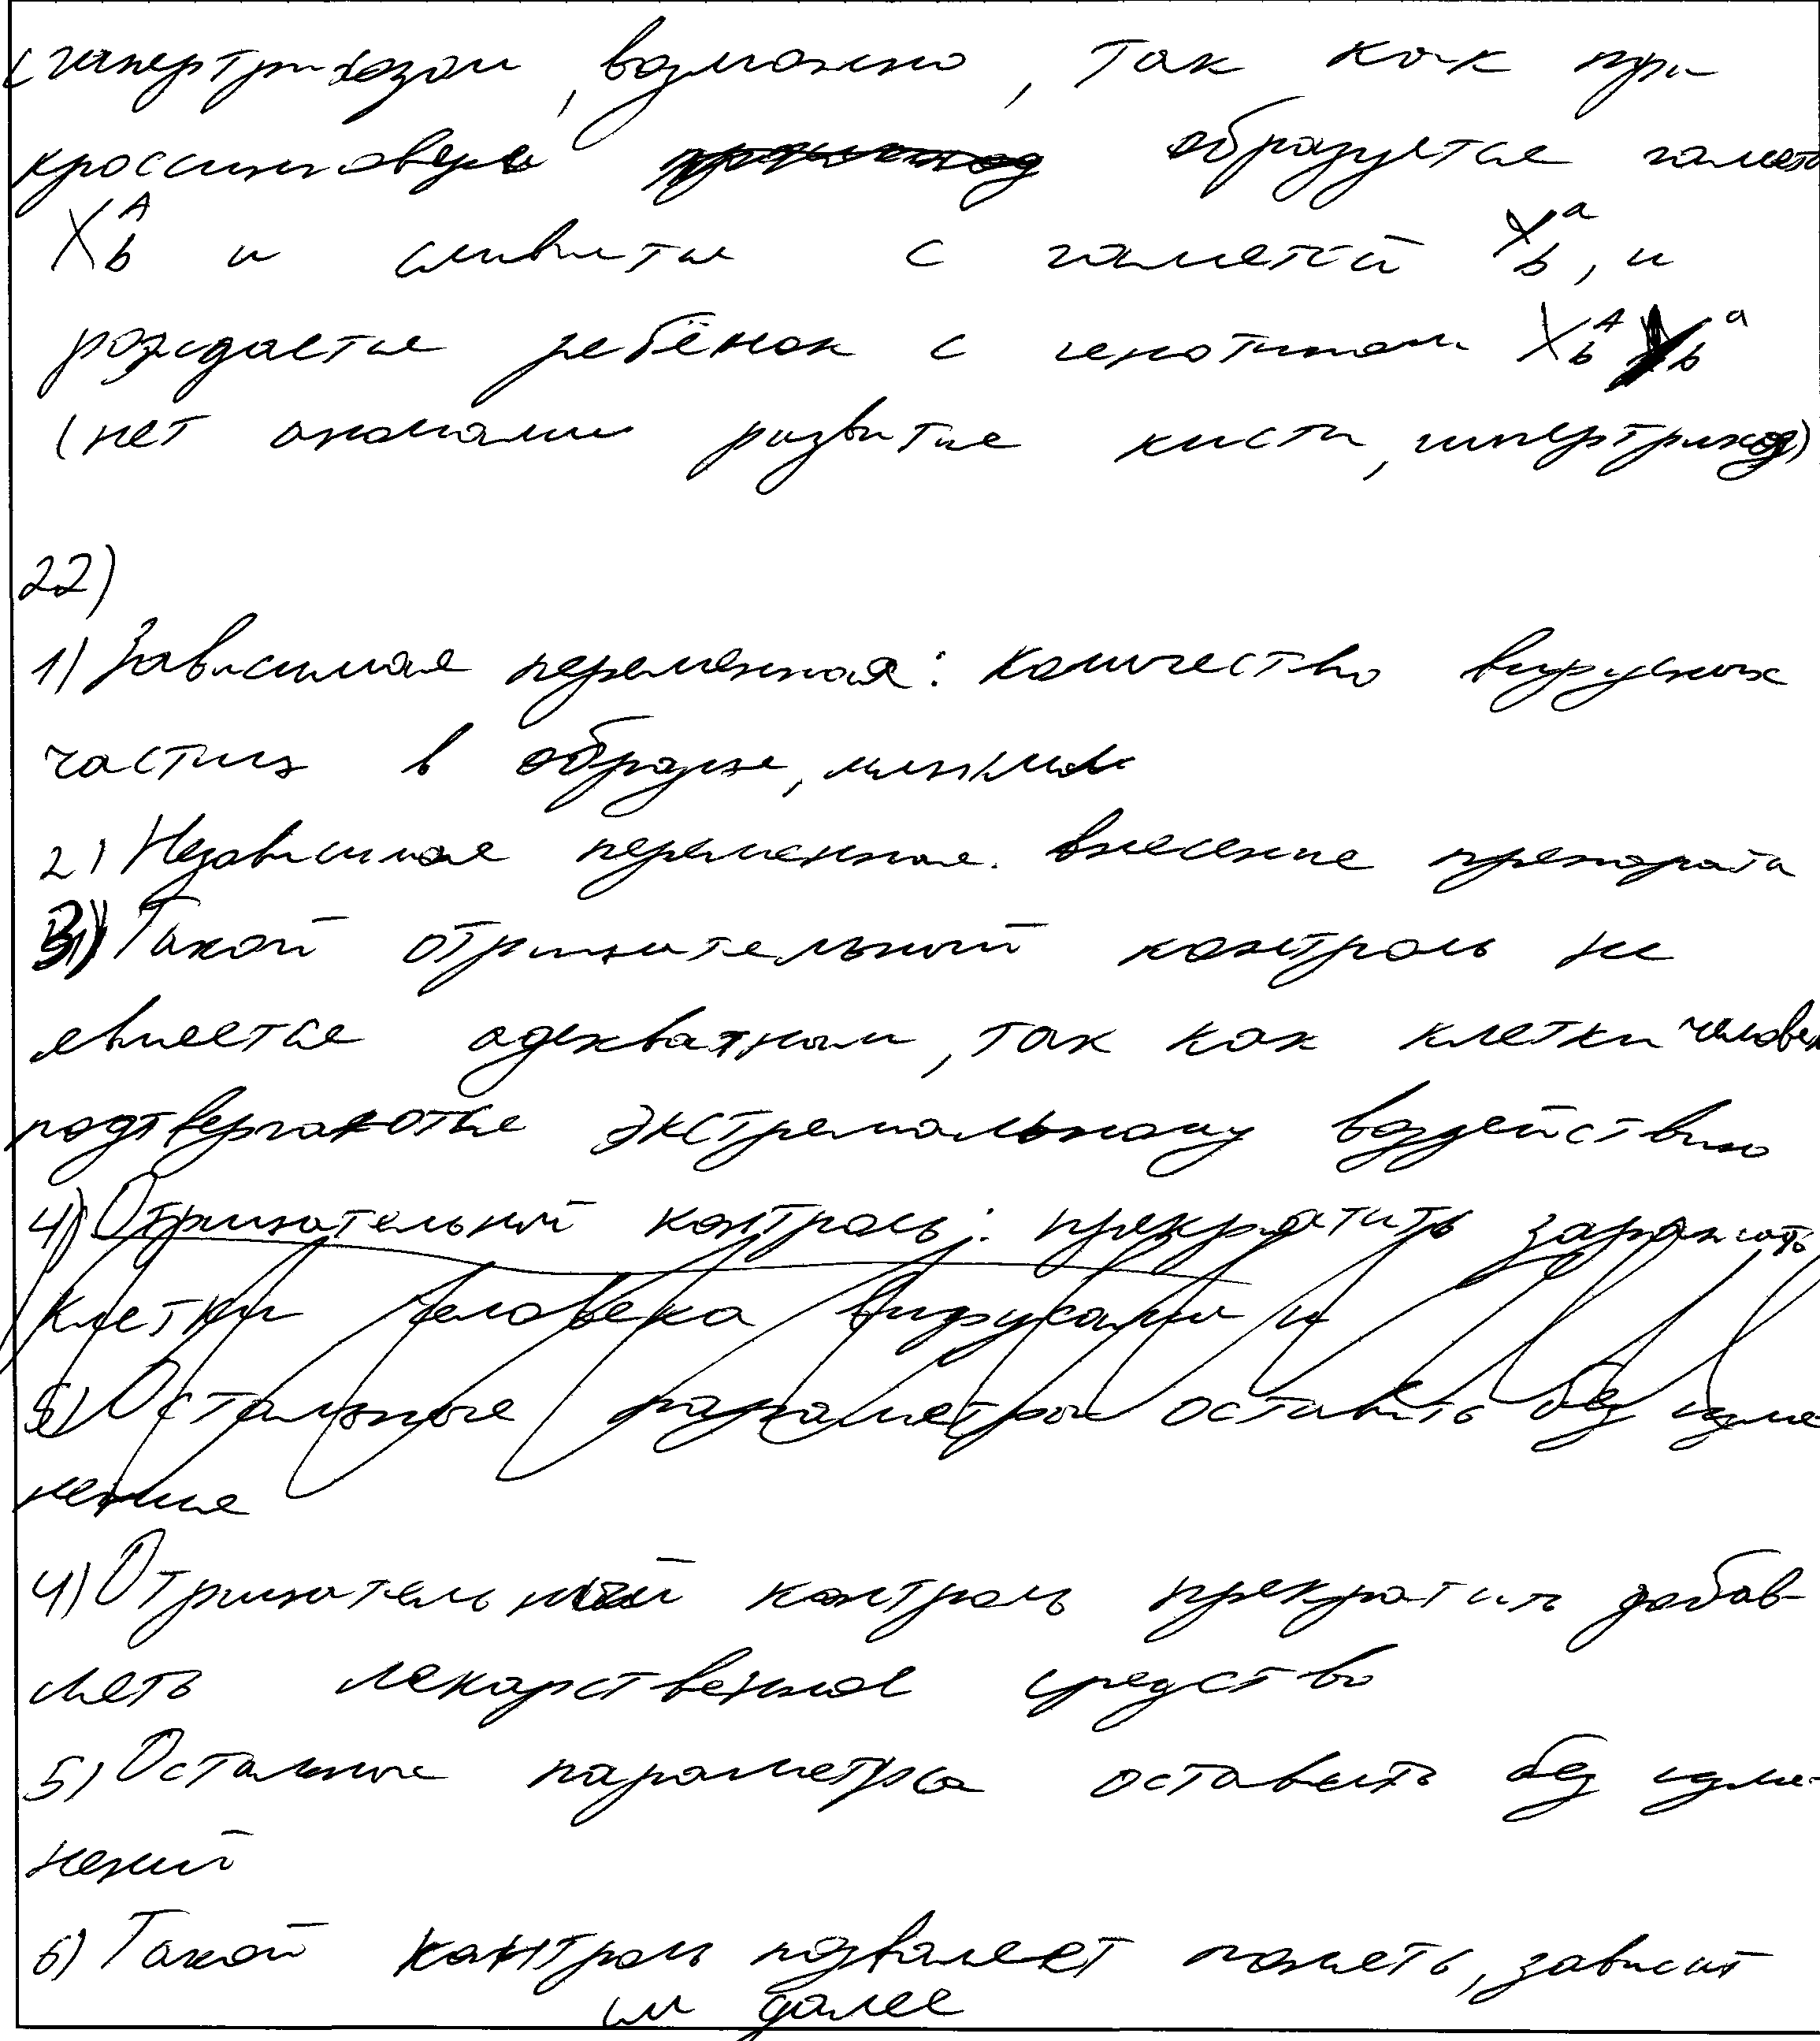 с гипертрихозом, возможно, так как при
кроссинговере образуется гамета
X^A_b и сливается с гаметой X^a_b, и
рождается ребёнок с генотипом X^A_b X^a_b
(нет аномалии развитие кисти, гипертрихоз)
22)
1) Зависимая переменная: количество вирусных
частиц в образце,
2) Независимая переменная. внесение препарата
3) Такой отрицательный контроль не
является адекватным, так как клетки человек
подтвергаются экстремальному воздействию
4) Отрицательный контроль: прекратить заражать
клетки человека вирусами и
5) Остальные параметры оставить без изме-
нение
4) Отрицательный контроль прекратить добав-
лять лекарственное средство
5) Остальные параметры оставить без изме-
нений
6) Такой контроль позваляет понять, зависит
см далее